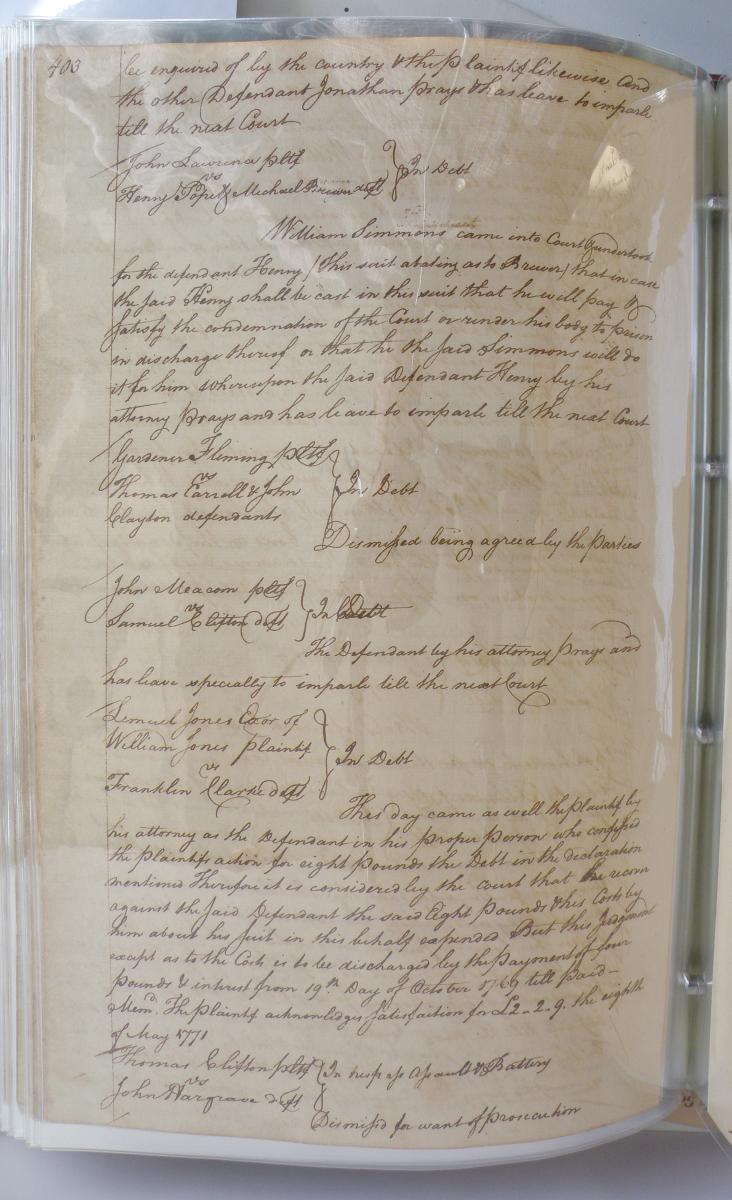 403
be enquired of by the country & the plaintif likewise and
the other Defendant Jonathan prays & has leave to imparle
till the next Court
John Lawrence pltf
vs
Henry Pope & Michael Brewer deft
In Debt
William Simmons came into Court & undertook
for the defendant Henry (this suit abating as to Brewer) that in case
the said Henry shall be cast in this suit that he will pay &
satisfy the condemnation of the Court or render his body to prison
in discharge thereof or that he the said Simmons will do
it for him whereupon the said Defendant Henry by his
attorney prays and has leave to imparle till the next Court
Gardener Fleming pltf
vs
Thomas Carrell & John
Clayton defendants
In Debt
Dismissed being agreed by the parties
John Meacom pltf
vs
Samuel Clifton deft
In Debt
The Defendant by his attorney prays and
has leave specially to imparle till the next Court
Lemuel Jones Exor of
William Jones plaintif
vs
Franklin Clarke deft
In Debt
This day came as well the plaintif by
his attorney as the Defendant in his proper person who confessed
the plaintifs action for eight pounds the Debt in the declaration
mentioned Therefore it is considered by the court that he recover
against the said Defendant the said Eight pounds & his Costs by
him about his suit in this behalf expended But this Judgment
except as to the Costs is to be discharged by the payment of four
pounds & interest from 19th Day of October 1769 till paid -
Memd. The plaintif acknowledges satisfaction for £2-2-9. the eighth
of May 1771
Thomas Clifton pltf
vs
John Hargrave deft
In trespass assault & Battery
Dismissd for want of prosecution